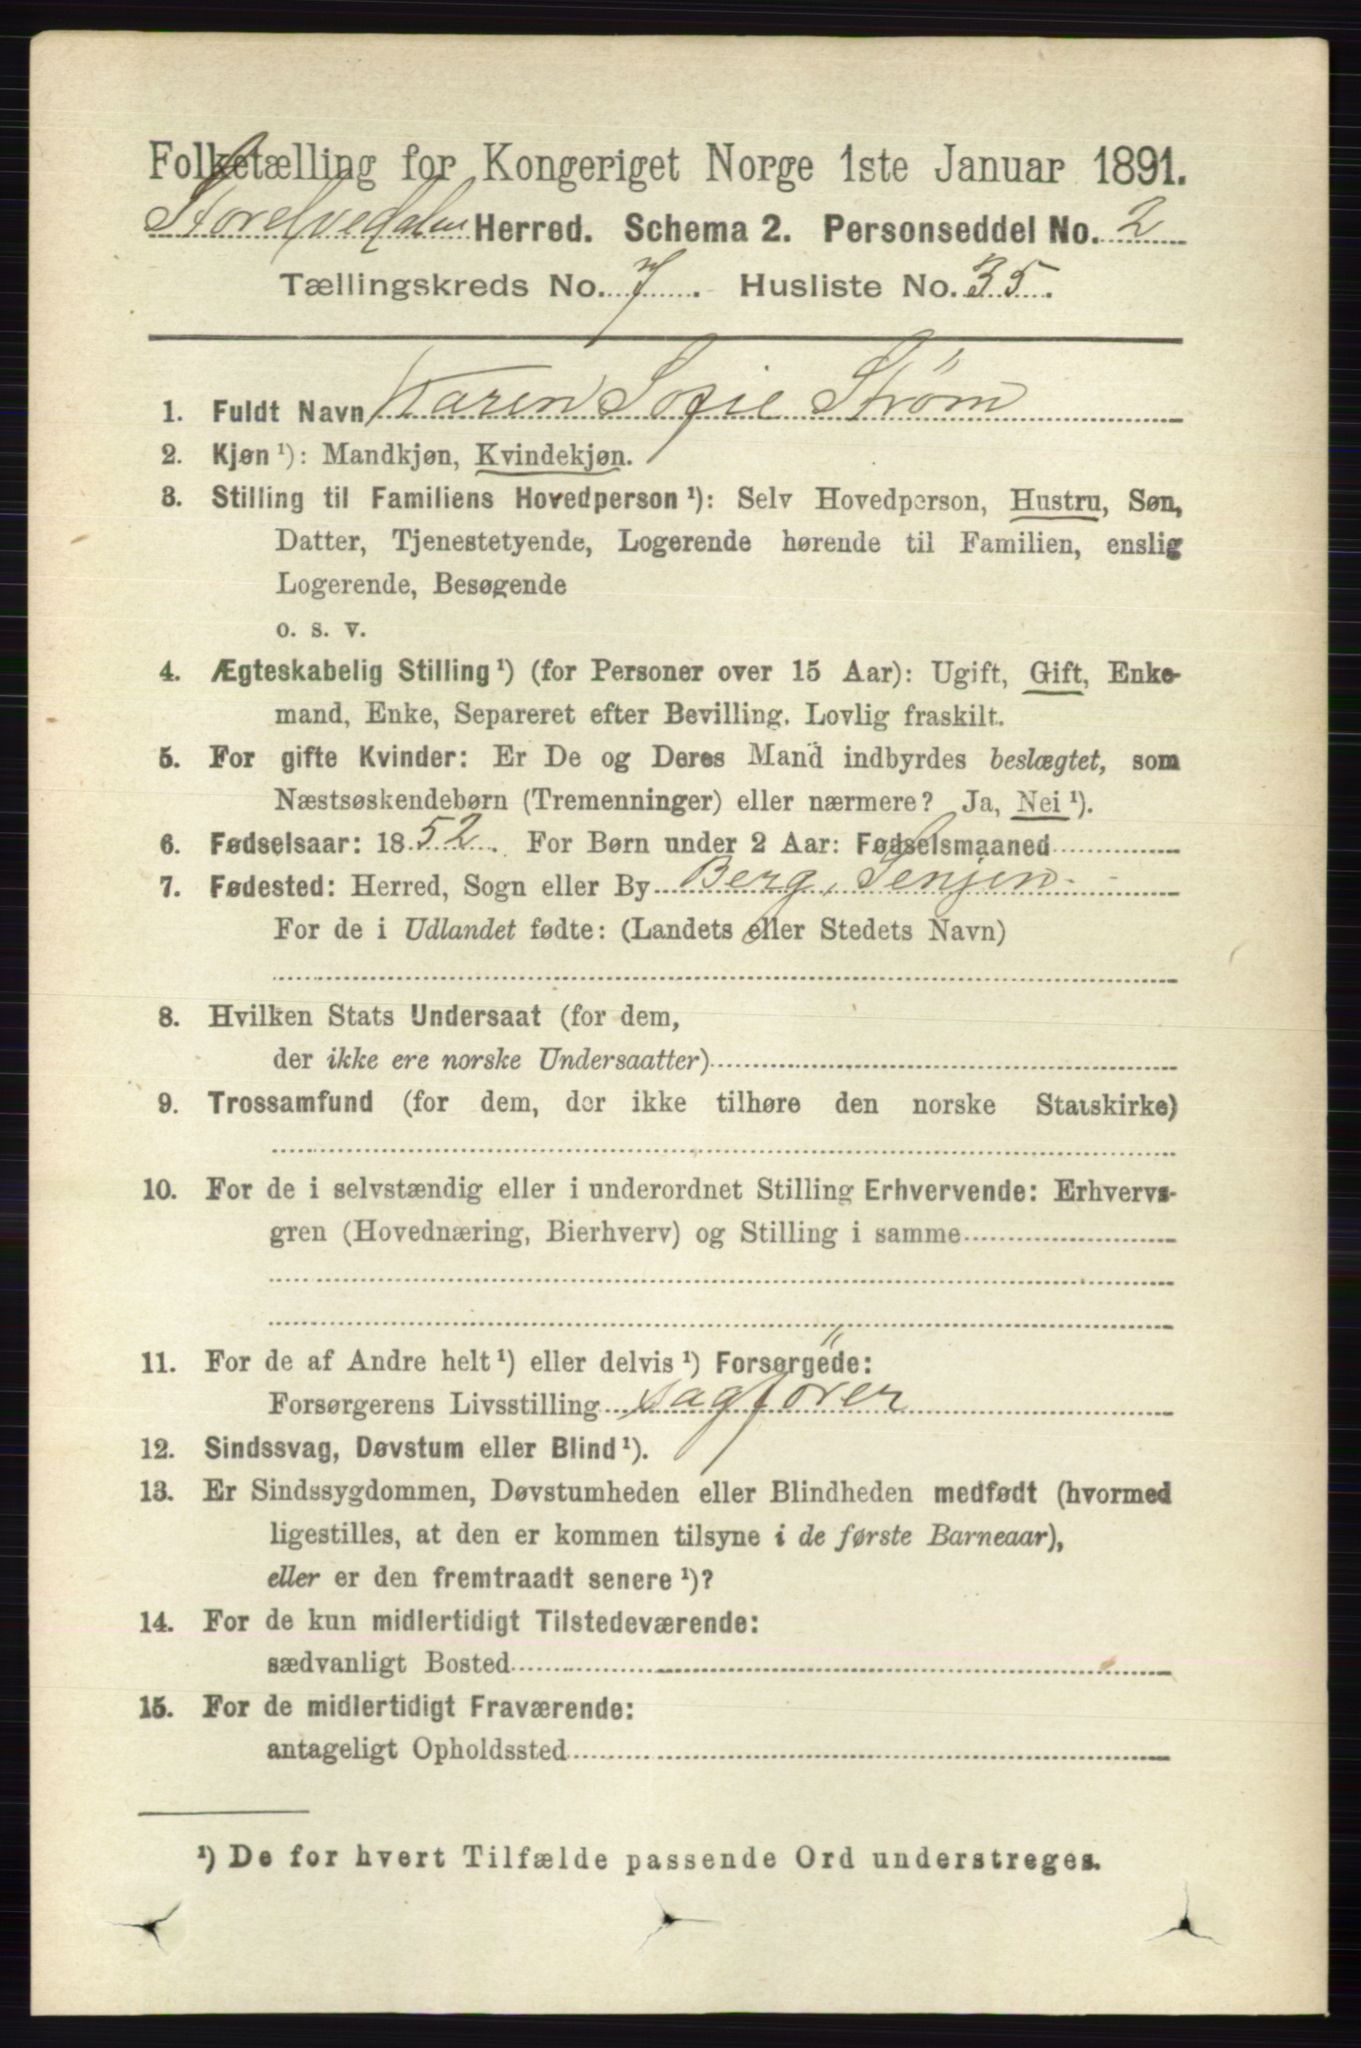 Folketælling for Kongeriget Norge 1ste Januar 1891.
Storelvedalen Herred. Schema 2. Personseddel No. 2
Tællingskreds No. 7. Husliste No. 35.
1. Fuldt Navn Karen Sofie Strøm
2. Kjøn ¹): Mandkjøn, Kvindekjøn.
3. Stilling til Familiens Hovedperson ¹): Selv Hovedperson, Hustru, Søn,
Datter, Tjenestetyende, Logerende hørende til Familien, enslig
Logerende, Besøgende
o. s. v.
4. Ægteskabelig Stilling ¹) (for Personer over 15 Aar): Ugift, Gift, Enke-
mand, Enke, Separeret efter Bevilling. Lovlig fraskilt.
5. For gifte Kvinder: Er De og Deres Mand indbyrdes beslægtet, som
Næstsøskendebørn (Tremenninger) eller nærmere? Ja, Nei ¹).
6. Fødselsaar: 1852. For Børn under 2 Aar: Fødselsmaaned
7. Fødested: Herred, Sogn eller By Berg, Senjen
For de i Udlandet fødte: (Landets eller Stedets Navn)
8. Hvilken Stats Undersaat (for dem,
der ikke ere norske Undersaatter)
9. Trossamfund (for dem, der ikke tilhøre den norske Statskirke)
10. For de i selvstændig eller i underordnet Stilling Erhvervende: Erhvervs-
gren (Hovednæring, Bierhverv) og Stilling i samme
11. For de af Andre helt ¹) eller delvis ¹) Forsørgede:
Forsørgerens Livsstilling Sagfører
12. Sindssvag, Døvstum eller Blind ¹).
13. Er Sindssygdommen, Døvstumheden eller Blindheden medfødt (hvormed
ligestilles, at den er kommen tilsyne i de første Barneaar),
eller er den fremtraadt senere ¹)?
14. For de kun midlertidigt Tilstedeværende:
sædvanligt Bosted
15. For de midlertidigt Fraværende:
antageligt Opholdssted
¹) De for hvert Tilfælde passende Ord understreges.